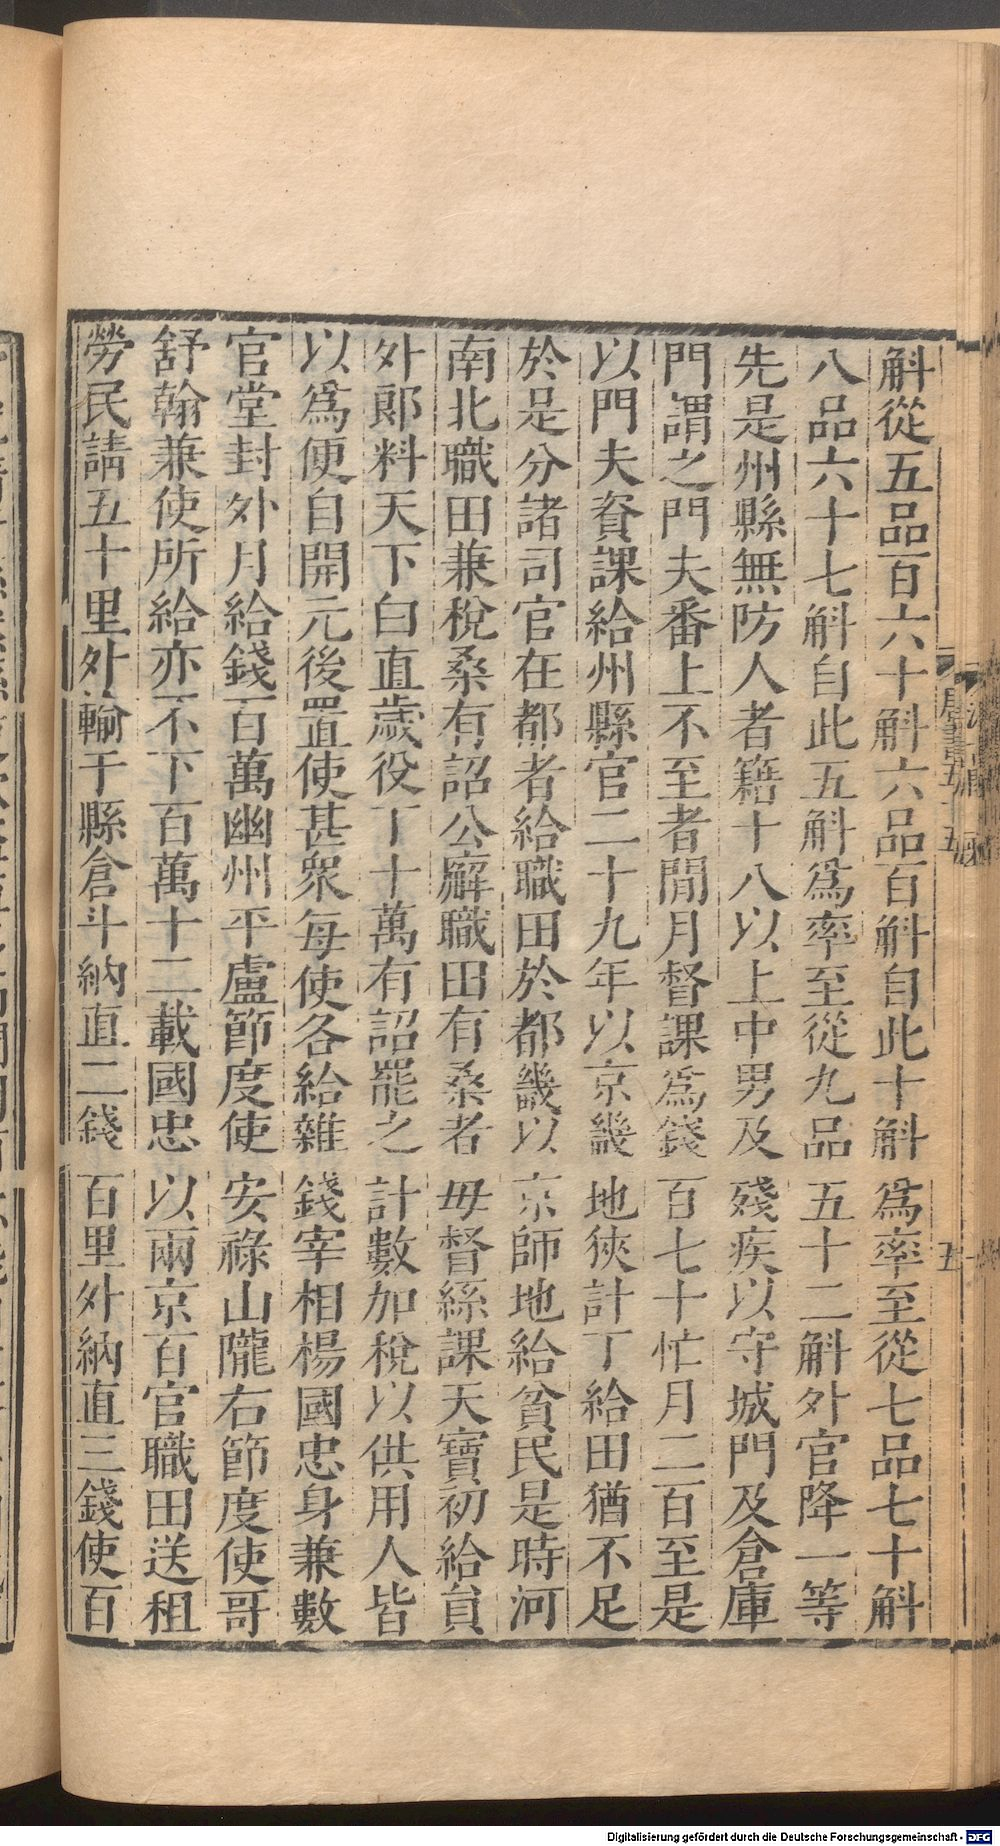 斛從五品百六十斛六品百斛自此十斛爲率至從七品七十斛
八品六十七斛自此五斛爲率至從九品五十二斛外官降一等
先是州縣無防人者籍十八以上中男及殘疾以守城門及倉庫
門謂之門夫番上不至者閒月督課爲錢百七十忙月二百至是
以門夫資課給州縣官二十九年以京畿地狹計丁給田猶不足
於是分諸司官在都者給職田於都畿以京師地給貧民是時河
南北職田兼稅桑有詔公廨職田有桑者毋督絲課天寶初給員
外郎料天下白直歲役丁十萬有詔罷之計數加稅以供用人皆
以爲便自開元後置使甚衆每使各給雜錢宰相楊國忠身兼數
官堂封外月給錢百萬幽州平盧節度使安祿山隴右節度使哥
舒翰兼使所給亦不下百萬十二載國忠以兩京百官職田送租
勞民請五十里外輸于縣倉斗納直二錢百里外納直三錢使百
唐書五十五
五
Digitalisierung gefördert durch die Deutsche Forschungsgemeinschaft - DFG